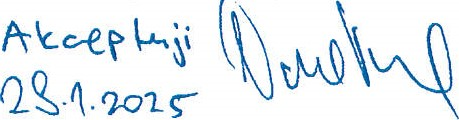 Akceptuji
28.1.2025